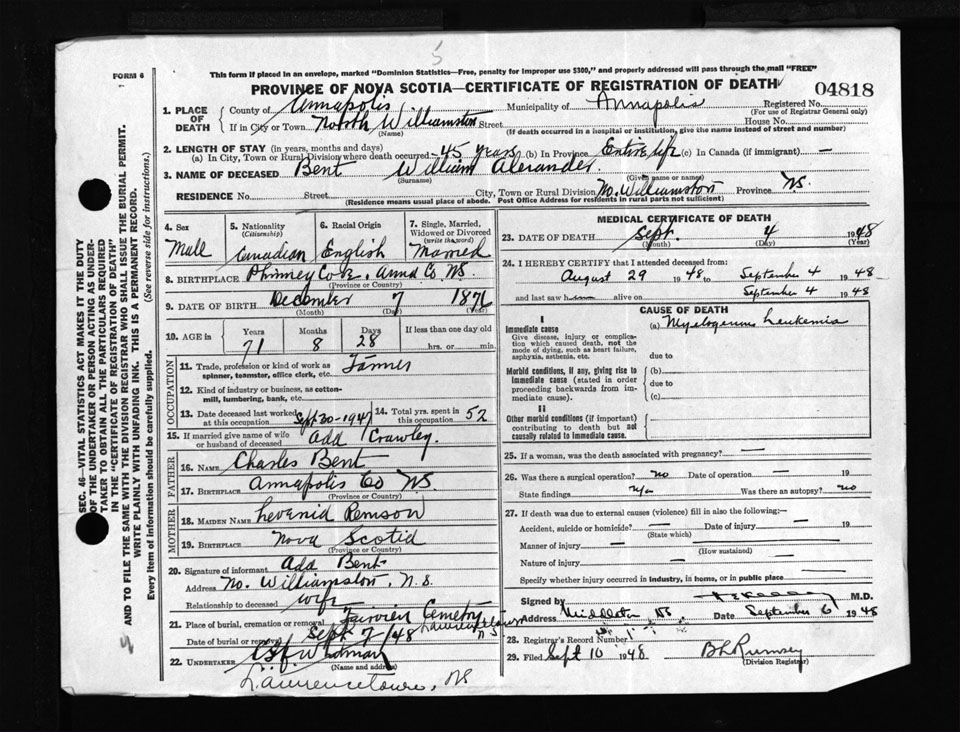 5
FORM 6
This form if placed in an envelope, marked "Dominion Statistics—Free, penalty for improper use $300," and properly addressed will pass through the mail "FREE"
PROVINCE OF NOVA SCOTIA—CERTIFICATE OF REGISTRATION OF DEATH
04818
1. PLACE OF DEATH
County of Annapolis Municipality of Annapolis Registered No.
(For use of Registrar General only)
If in City or Town North Williamston Street House No.
(Name) (If death occurred in a hospital or institution, give the name instead of street and number)
2. LENGTH OF STAY (in years, months and days)
(a) In City, Town or Rural Division where death occurred 45 years (b) In Province Entire life (c) In Canada (if immigrant) —
3. NAME OF DECEASED Bent William Alexander
(Surname) (Given name or names)
RESIDENCE No. Street City, Town or Rural Division No. Williamston Province NS.
(Residence means usual place of abode. Post Office Address for residents in rural parts not sufficient)
4. Sex Male
5. Nationality (Citizenship) Canadian
6. Racial Origin English
7. Single, Married, Widowed or Divorced (write the word) Married
8. BIRTHPLACE Phinney Cove. Anna Co NS.
(Province or Country)
9. DATE OF BIRTH December 7 1876
(Month) (Day) (Year)
10. AGE in Years Months Days If less than one day old
71 8 28 hrs. or min.
OCCUPATION
11. Trade, profession or kind of work as spinner, teamster, office clerk, etc. Farmer
12. Kind of industry or business, as cotton-mill, lumbering, bank, etc.
13. Date deceased last worked at this occupation Sept 30-1947
14. Total yrs. spent in this occupation 52
15. If married give name of wife or husband of deceased Ada Crawley.
FATHER
16. Name Charles Bent
17. Birthplace Annapolis Co NS.
(Province or Country)
MOTHER
18. Maiden Name Remson
19. Birthplace Nova Scotia
(Province or Country)
20. Signature of informant Ada Bent
Address No. Williamston, N.S.
Relationship to deceased wife
21. Place of burial, cremation or removal Fairview Cemetery Lawrencetown NS
Date of burial or removal Sept 7/48
22. UNDERTAKER Whitman
(Name and address)
Lawrencetown, NS
MEDICAL CERTIFICATE OF DEATH
23. DATE OF DEATH Sept. 4 1948
(Month) (Day) (Year)
24. I HEREBY CERTIFY that I attended deceased from:
August 29 1948 to September 4 1948
and last saw h alive on September 4 1948
CAUSE OF DEATH
I
Immediate cause
Give disease, injury or complication which caused death, not the mode of dying, such as heart failure, asphyxia, asthenia, etc.
(a) Myelogenous Leukemia
due to
Morbid conditions, if any, giving rise to immediate cause (stated in order proceeding backwards from immediate cause).
(b)
due to
(c)
II
Other morbid conditions (if important) contributing to death but not causally related to immediate cause.
25. If a woman, was the death associated with pregnancy? —
26. Was there a surgical operation? no Date of operation — 19
State findings n/a Was there an autopsy? no
27. If death was due to external causes (violence) fill in also the following:—
Accident, suicide or homicide? — Date of injury — 19
(State which)
Manner of injury —
(How sustained)
Nature of injury —
Specify whether injury occurred in industry, in home, or in public place
Signed by M.D.
Address Middleton NS Date September 6 1948
28. Registrar's Record Number
29. Filed Sept 10 1948 Rumsey
(Division Registrar)
SEC. 46—VITAL STATISTICS ACT MAKES IT THE DUTY
OF THE UNDERTAKER OR PERSON ACTING AS UNDER-
TAKER TO OBTAIN ALL THE PARTICULARS REQUIRED
IN THE "CERTIFICATE OF REGISTRATION OF DEATH"
AND TO FILE THE SAME WITH THE DIVISION REGISTRAR WHO SHALL ISSUE THE BURIAL PERMIT.
WRITE PLAINLY WITH UNFADING INK. THIS IS A PERMANENT RECORD.
Every item of information should be carefully supplied. (See reverse side for instructions.)